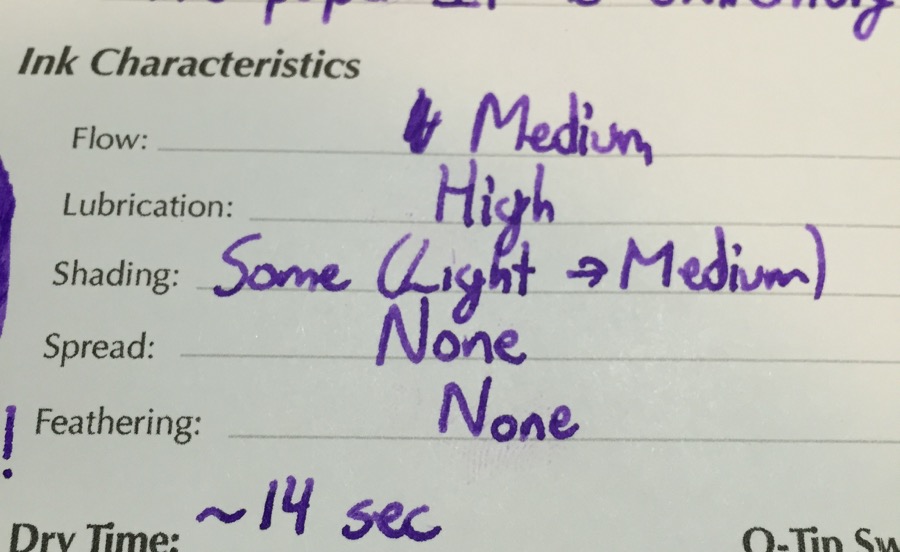 Ink Characteristics
Flow: Medium
Lubrication: High
Shading: Some (Light → Medium)
Spread: None
Feathering: None
Dry Time: ~14 sec
Q-Tip